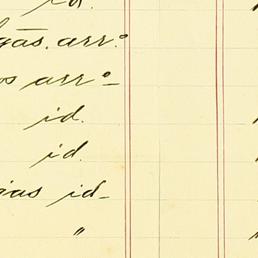 id.
gãs. arr.º
os arr.º
id.
id.
gas id
"